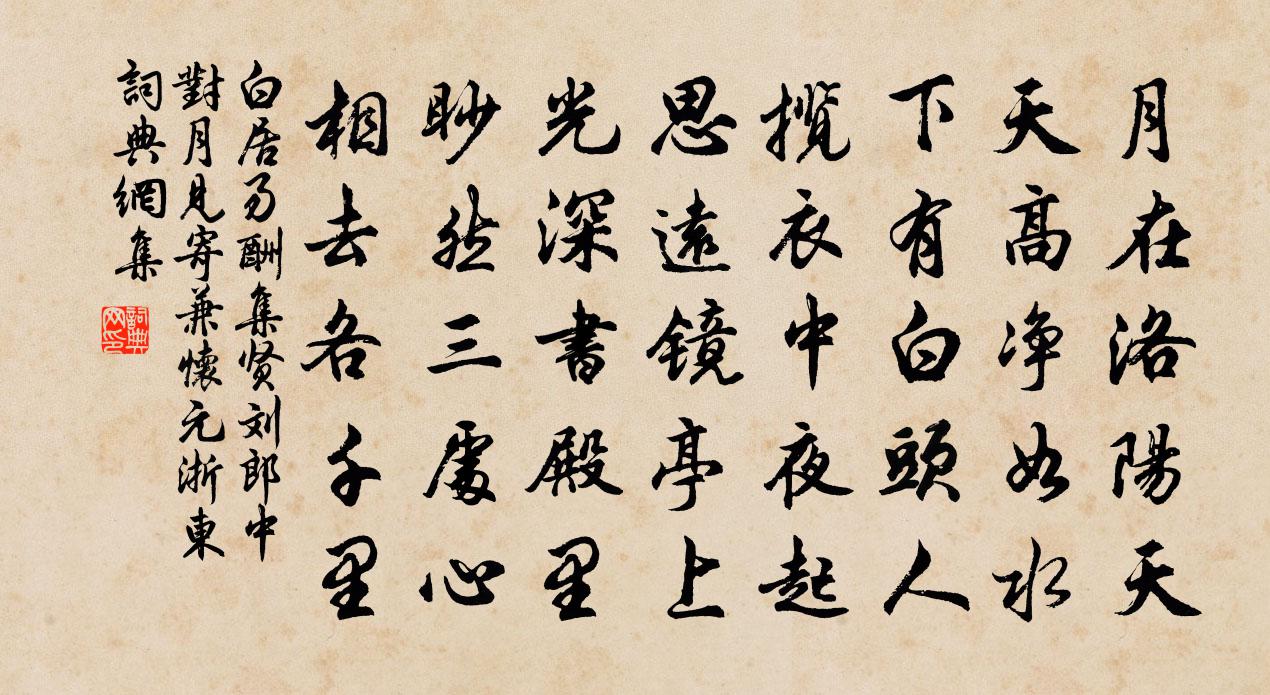 月在洛陽天
天高净如水
下有白頭人
揽衣中夜起
思遠镜亭上
光深書殿里
眇然三處心
相去各千里
白居易酬集贤刘郎中
對月見寄兼懷元浙東
詞典網集
詞典网印